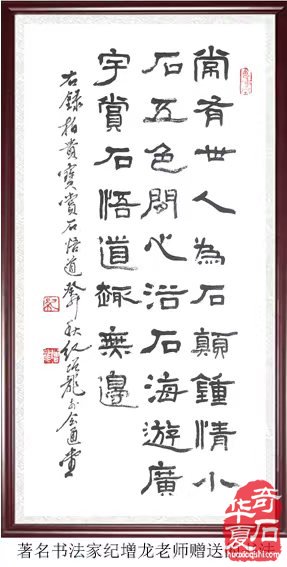 常有世人為石顛鍾情小
石五色間心浴石海遊廣
宇賞石悟道趣無邊
右錄柏貴寶賞石悟道 秋紀增龍於會通堂
著名书法家纪增龙老师赠送 书法
华夏
奇石
huaxiaqishi.com